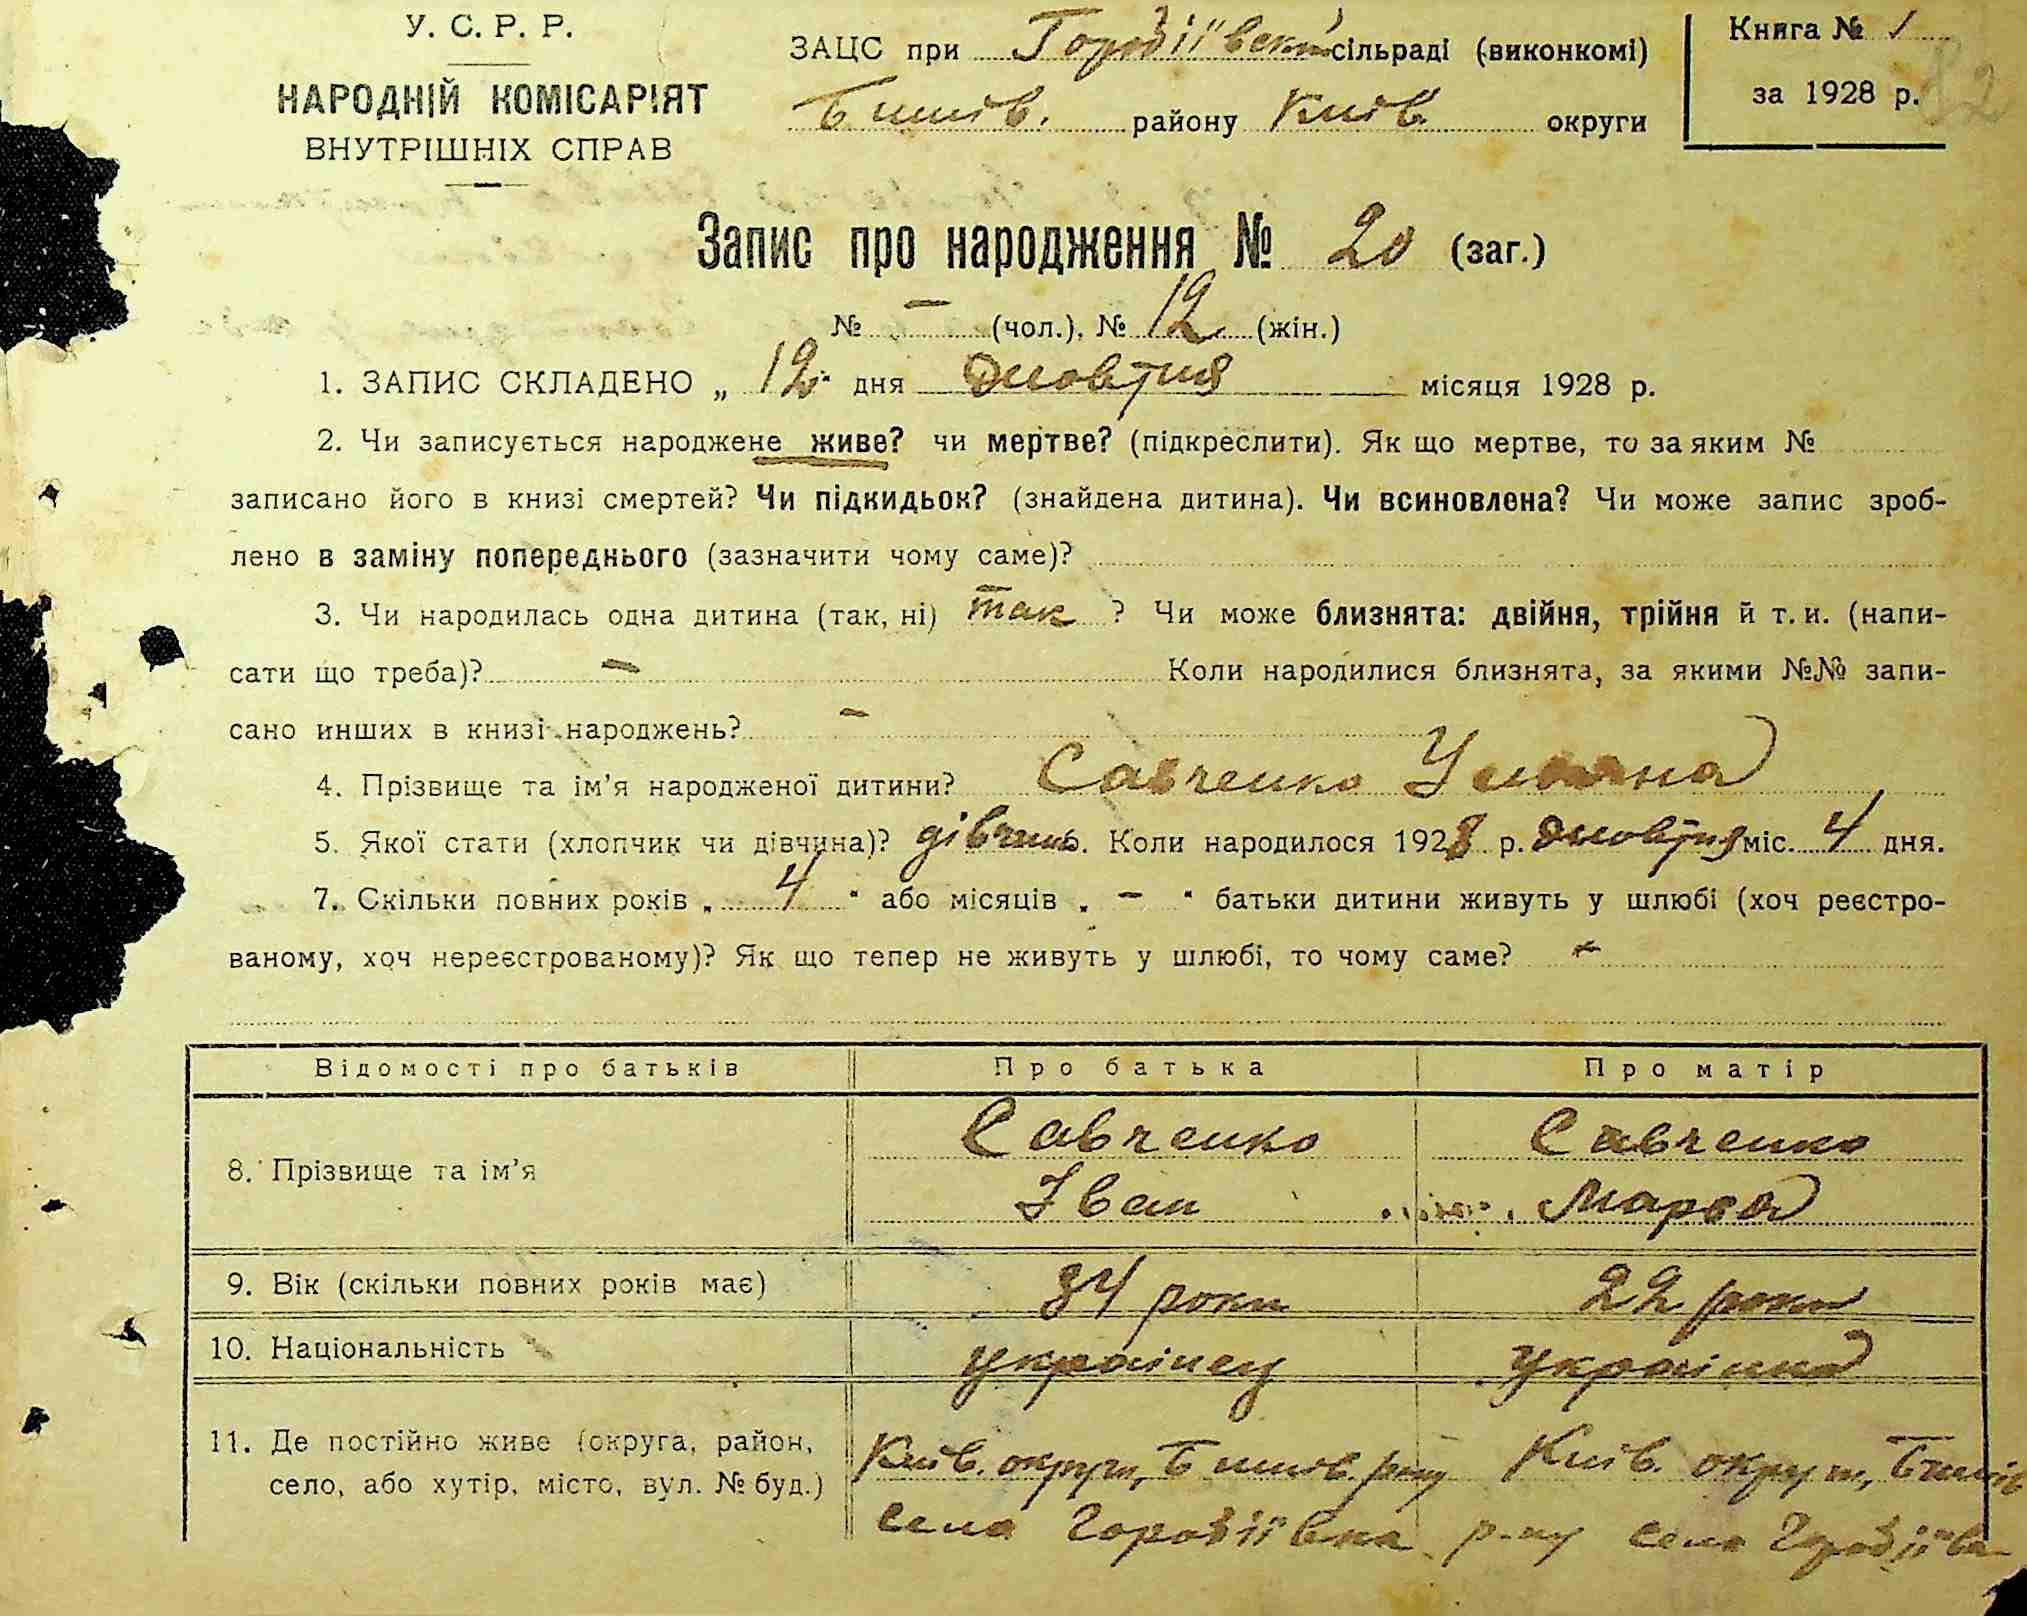 У. С. Р. Р.
НАРОДНІЙ КОМІСАРІЯТ
ВНУТРІШНІХ СПРАВ
ЗАЦС при Гордіївській сільраді (виконкомі)
Бишів. району Київ. округи
Книга № 1
за 1928 р.
82
Запис про народження № 20 (заг.)
№ — (чол.), № 12 (жін.)
1. ЗАПИС СКЛАДЕНО „ 12 “ дня жовтня місяця 1928 р.
2. Чи записується народжене живе? чи мертве? (підкреслити). Як що мертве, то за яким №
записано його в книзі смертей? Чи підкидьок? (знайдена дитина). Чи всиновлена? Чи може запис зроб-
лено в заміну попереднього (зазначити чому саме)?
3. Чи народилась одна дитина (так, ні) так ? Чи може близнята: двійня, трійня й т. и. (напи-
сати що треба)? — Коли народилися близнята, за якими №№ запи-
сано инших в книзі народжень? —
4. Прізвище та ім’я народженої дитини? Савченко Уляна
5. Якої стати (хлопчик чи дівчина)? дівчина. Коли народилося 1928 р. жовтня міс. 4 дня.
7. Скільки повних років „ 4 “ або місяців „ — “ батьки дитини живуть у шлюбі (хоч реєстро-
ваному, хоч нереєстрованому)? Як що тепер не живуть у шлюбі, то чому саме? —
Відомості про батьків Про батька Про матір
8. Прізвище та ім’я
Савченко Савченко
Іван Марія
9. Вік (скільки повних років має) 34 роки 22 роки
10. Національність українец українка
11. Де постійно живе (округа, район,
село, або хутір, місто, вул. № буд.)
Київ. округи, Бишів. р-ну Київ. округи, Бишів
села Гордіївка р-ну села Гордіївка